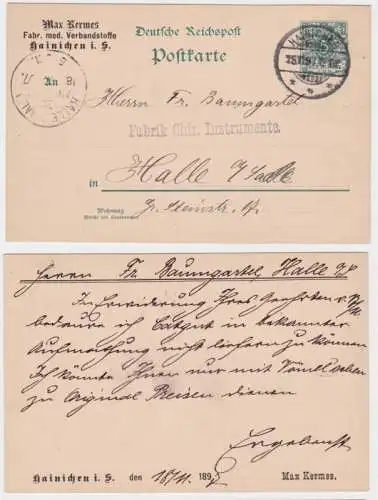 Max Kermes
Fabr. med. Verbandstoffe
Hainichen i. S.
Deutsche Reichspost
Postkarte
HAINICHEN
HALLE
An
Herrn Fr. Baumgartel
Fabrik Chir. Instrumente.
in Halle a/Saale
Wohnung
Gr. Steinstr. 17
Herrn Fr. Baumgartel, Halle a/S
In Erwiderung Ihres Geehrten v.
bedaure ich Catgut in bekannter
Aufmachung nicht liefern zu können
Ich könnte Ihnen nur mit
zu Original Preisen dienen
Ergebenst
Hainichen i. S. den 18/11 189
Max Kermes.